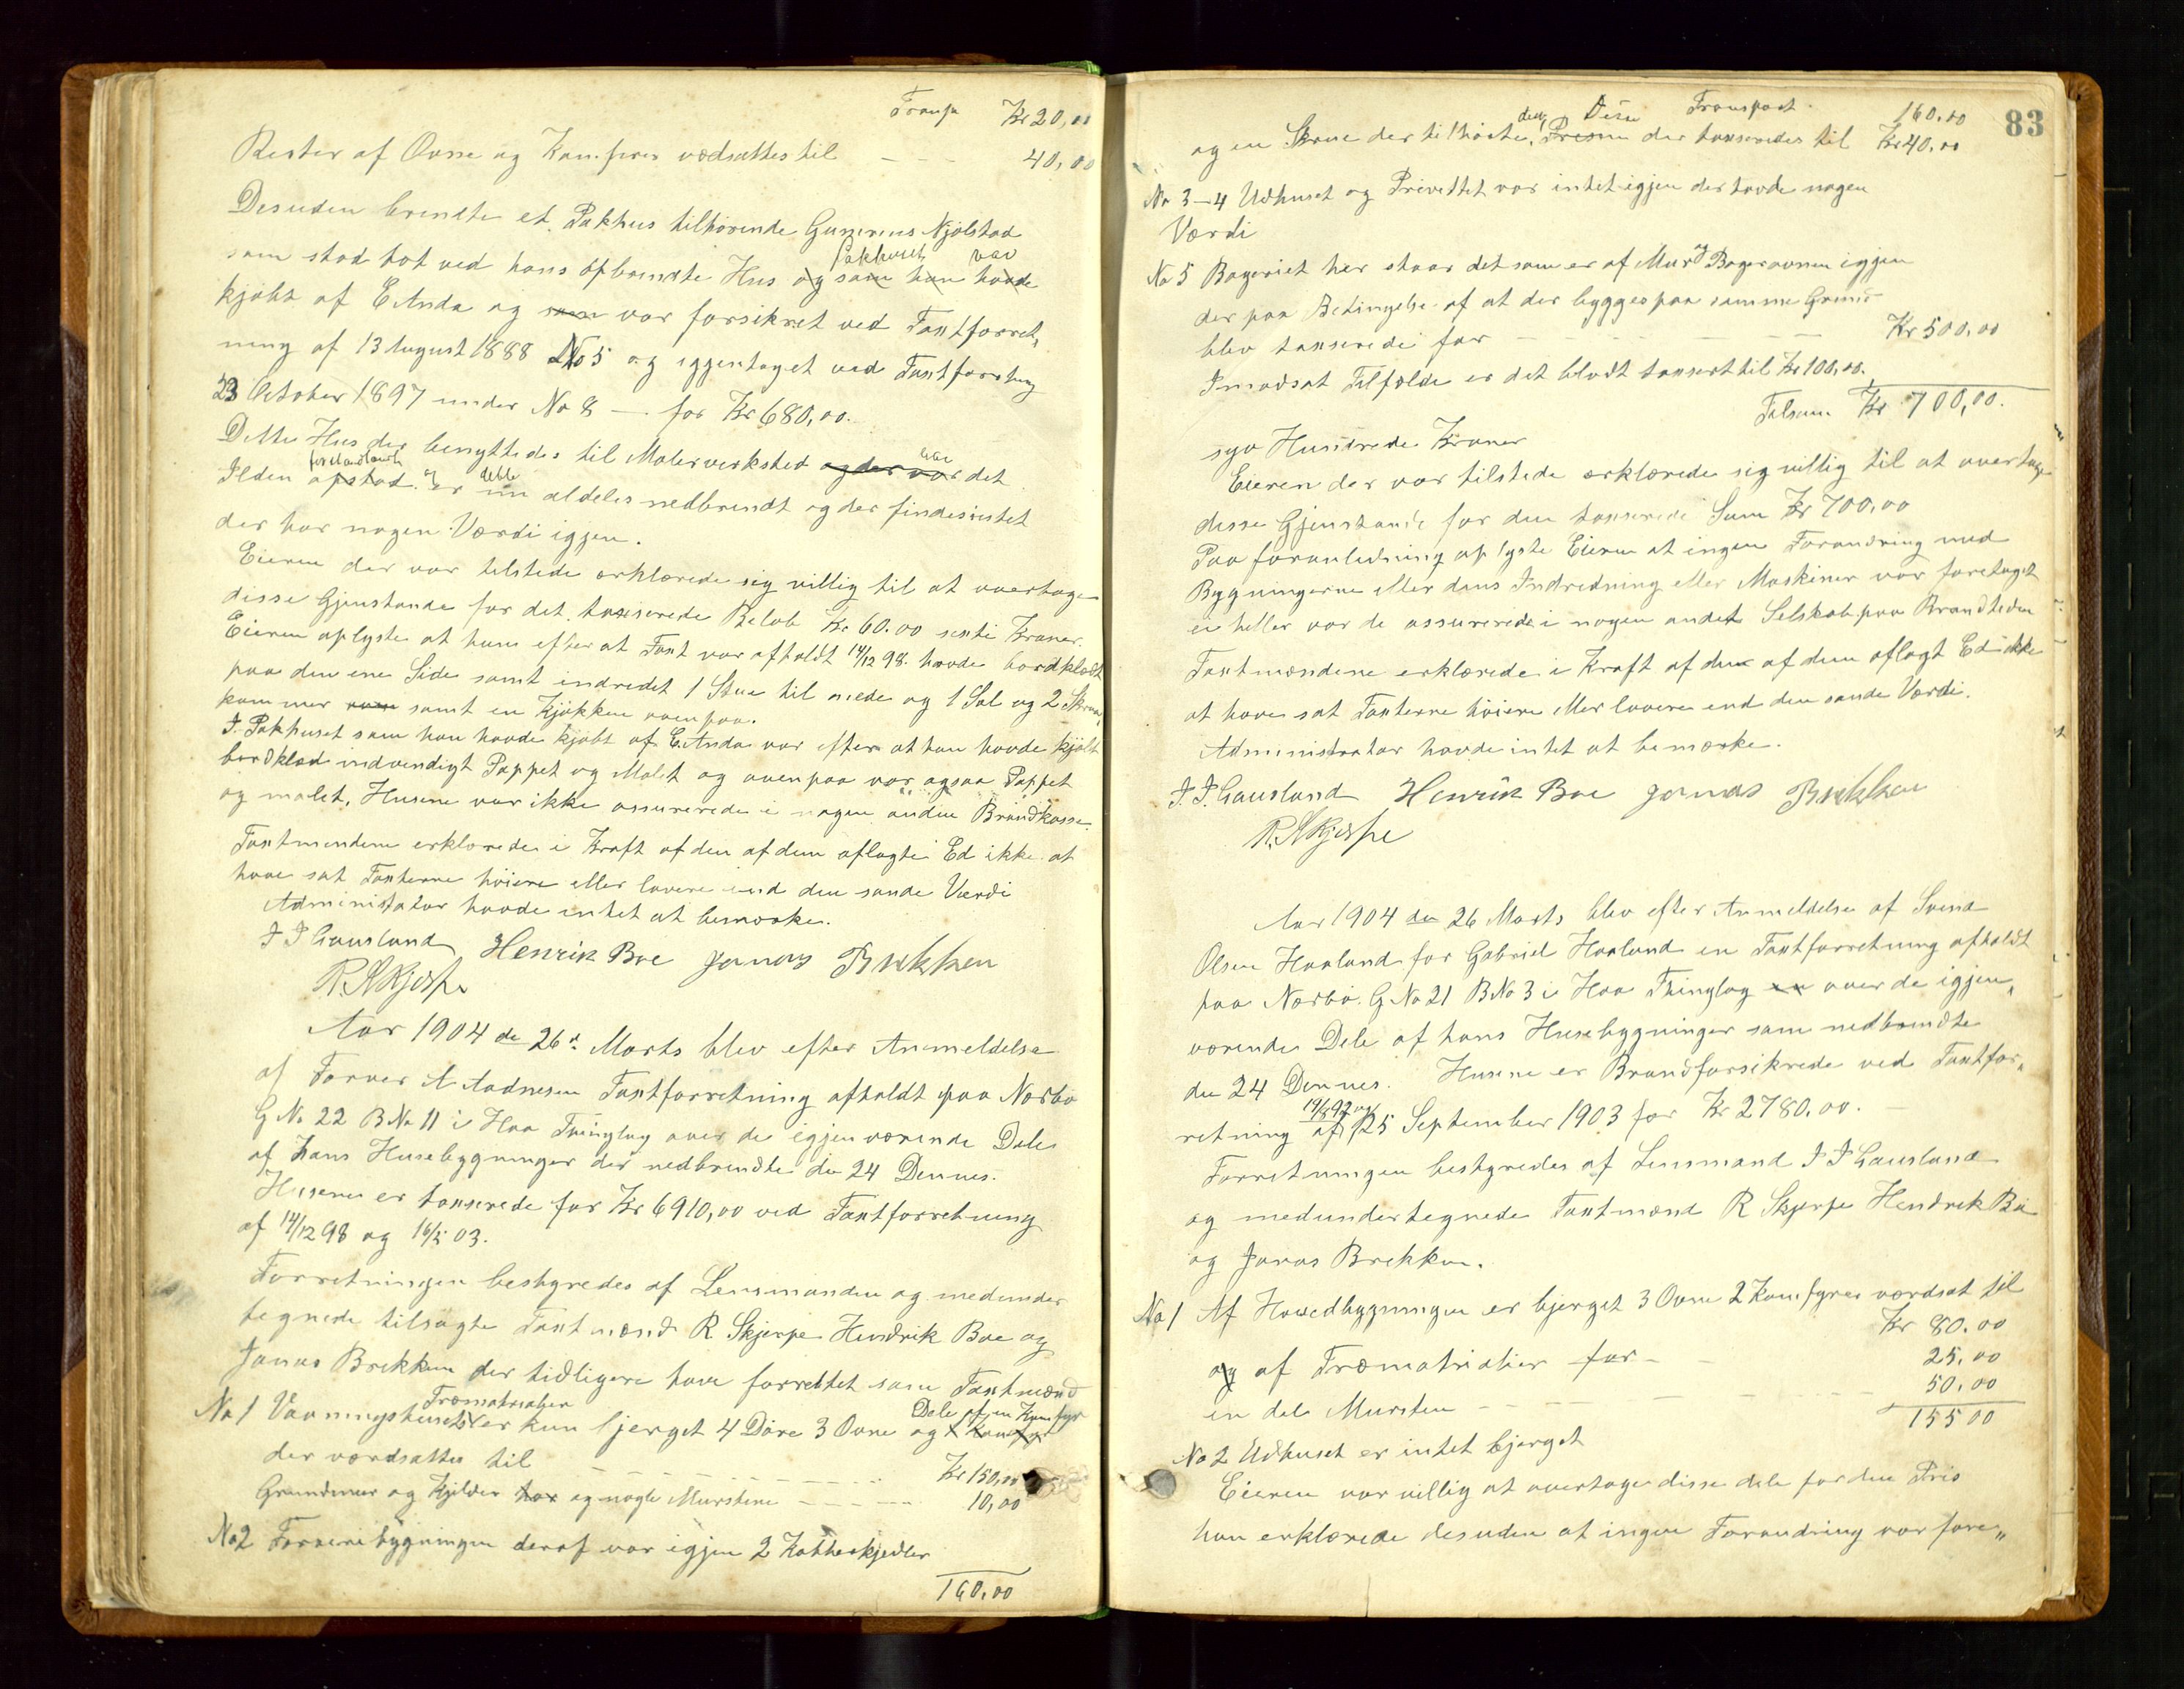 Transp Kr 20,00
Rester af Ovne og Komfurer værdsattes til - - - 40,00
Desuden brendte et Pakhus tilhørende Gunerius Njølstad
Pakhuset var
som stod tæt ved hans opbrendte Hus og som han havde
kjøbt af E Anda og som var forsikret ved Taxtforret,
ning af 13 August 1888 No 5 og iggentaget ved Taxtforretng
23 October 1897 under No 8 — for Kr 680,00.
Dette Hus der benyttedes til Malerverksted og der var det
Ilden opstod er nu aldeles nedbrendt og der findes intet
der har nogen Værdi iggen.
Eieren der var tilstede erklærede sig villig til at overtage
disse Gjenstande for det taxserede Beløb Kr 60.00 sexti Kroner.
Eieren oplyste at han efter at Taxt var afholdt 14/12 98. havde bordklædt
paa den ene Side samt indredet 1 Stue til nede og 1 Sal og 2 Skraa,
kammer samt en Kjøkken ovenpaa.
I Pakhuset som han havde kjøbt af E. Anda var efter at han havde kjøbt
bordklæd indvendigt Pappet og Malet og ovenpaa var ogsaa Pappet
og malet, Husene var ikke assurerede i nogen anden Brandkasse.
Taxtmendene erklærede i Kraft af den af dem aflagte Ed ikke at
have sat Taxterne høiere eller lavere end den sande Værdi
Administrator havde intet at bemærke.
J J Gausland Henrik Boe Jonas Brekken
R. Skjerpe
Aar 1904 den 26d Marts blev efter Anmeldelse
af Farver A Aadnesen Taxtforretning afholdt paa Nærbø
G No 22 B No 11 i Haa Thinglag over de igjenværende Dele
af Hans Husebygninger der nedbrendte den 24 Dennes.
Husene er taxserede for Kr 6910,00 ved Taxtforretning
af 14/12 98 og 16/5 03.
Forretningen bestyredes af Lensmanden og medunder
tegnede tilsagte Taxtmænd R. Skjerpe Hendrik Boe og
Jonas Brekken der tidligere have forrettet som Taxtmænd
Træmaterialier Dele af en Komfyr
No 1 Vaaningshuset er kun bjerget 4 Døre 3 Ovne og 1 Komfyr
der værdsattes til - - - Kr 150,00
Grundmur og Kjelder og nogle Murstene - - - 10,00
No 2 Farveribygningen deraf var igjen 2 Kobberkjedler
160,00
83
Transport 160.00
den, Disse
og en Skrue der tilhørte, Presin der taxseredes til Kr 40.00
No 3-4 Udhuset og Privettet var intet igjen der havde nogen
Værdi
No 5 Bageriet her staar det som er af Mur og Bagerovnen iggen
der paa Betingelse af at der bygges paa samme Grund
blev taxserede for - - - Kr 500,00
I modsat Tilfælde er det blodt taxsert til Kr 100,00.
Tilsam. Kr 700,00.
syv Hundrede Kroner
Eieren der var tilstede erklærede sig villig til at overtage
disse Gjenstande for den taxserede Sum Kr 700,00
Paa foranledning oplyste Eieren at ingen Forandring med
Bygningerne eller dens Indredning eller Maskiner var foretaget
ei heller var de assurerede i nogen andet Selskab paa Brandtiden
Taxtmændene erklærede i Kraft af den af dem aflagt Ed ikke
at have sat Taxterne høiere eller lavere end den sande Værdi.
Administrator havde intet at bemærke.
J. J. Gausland Henrik Boe Jonas Brekken
R. Skjerpe
Aar 1904 den 26 Marts blev efter Anmeldelse af Svend
Olsen Haaland for Gabriel Haaland en Taxtforretning afholdt
paa Nærbø G No 21 B No 3 i Haa Thinglag over de igjen,
værende Dele af hans Husebygninger som nedbrendte
den 24 Dennes. Husene er Brandforsikrede ved Taxtfor,
19/8 97 og
retning af 25 September 1903 for Kr 2780.00.
Forretningen bestyredes af Lensmand J J Gausland
og medundertegnede Taxtmænd R Skjerpe Hendrik Bø
og Jonas Brekken.
No 1 Af Hovedbygningen er bjerget 3 Ovne 2 Komfyrer værdsat til
Kr 80.00
og af Træmatrialier for - 25,00
en del Mursten - - - 50,00
155 00
No 2 Udhuset er intet bjerget
Eieren var villig at overtage disse dele for den Pris
han erklærede desuden at ingen Forandring var fore,,